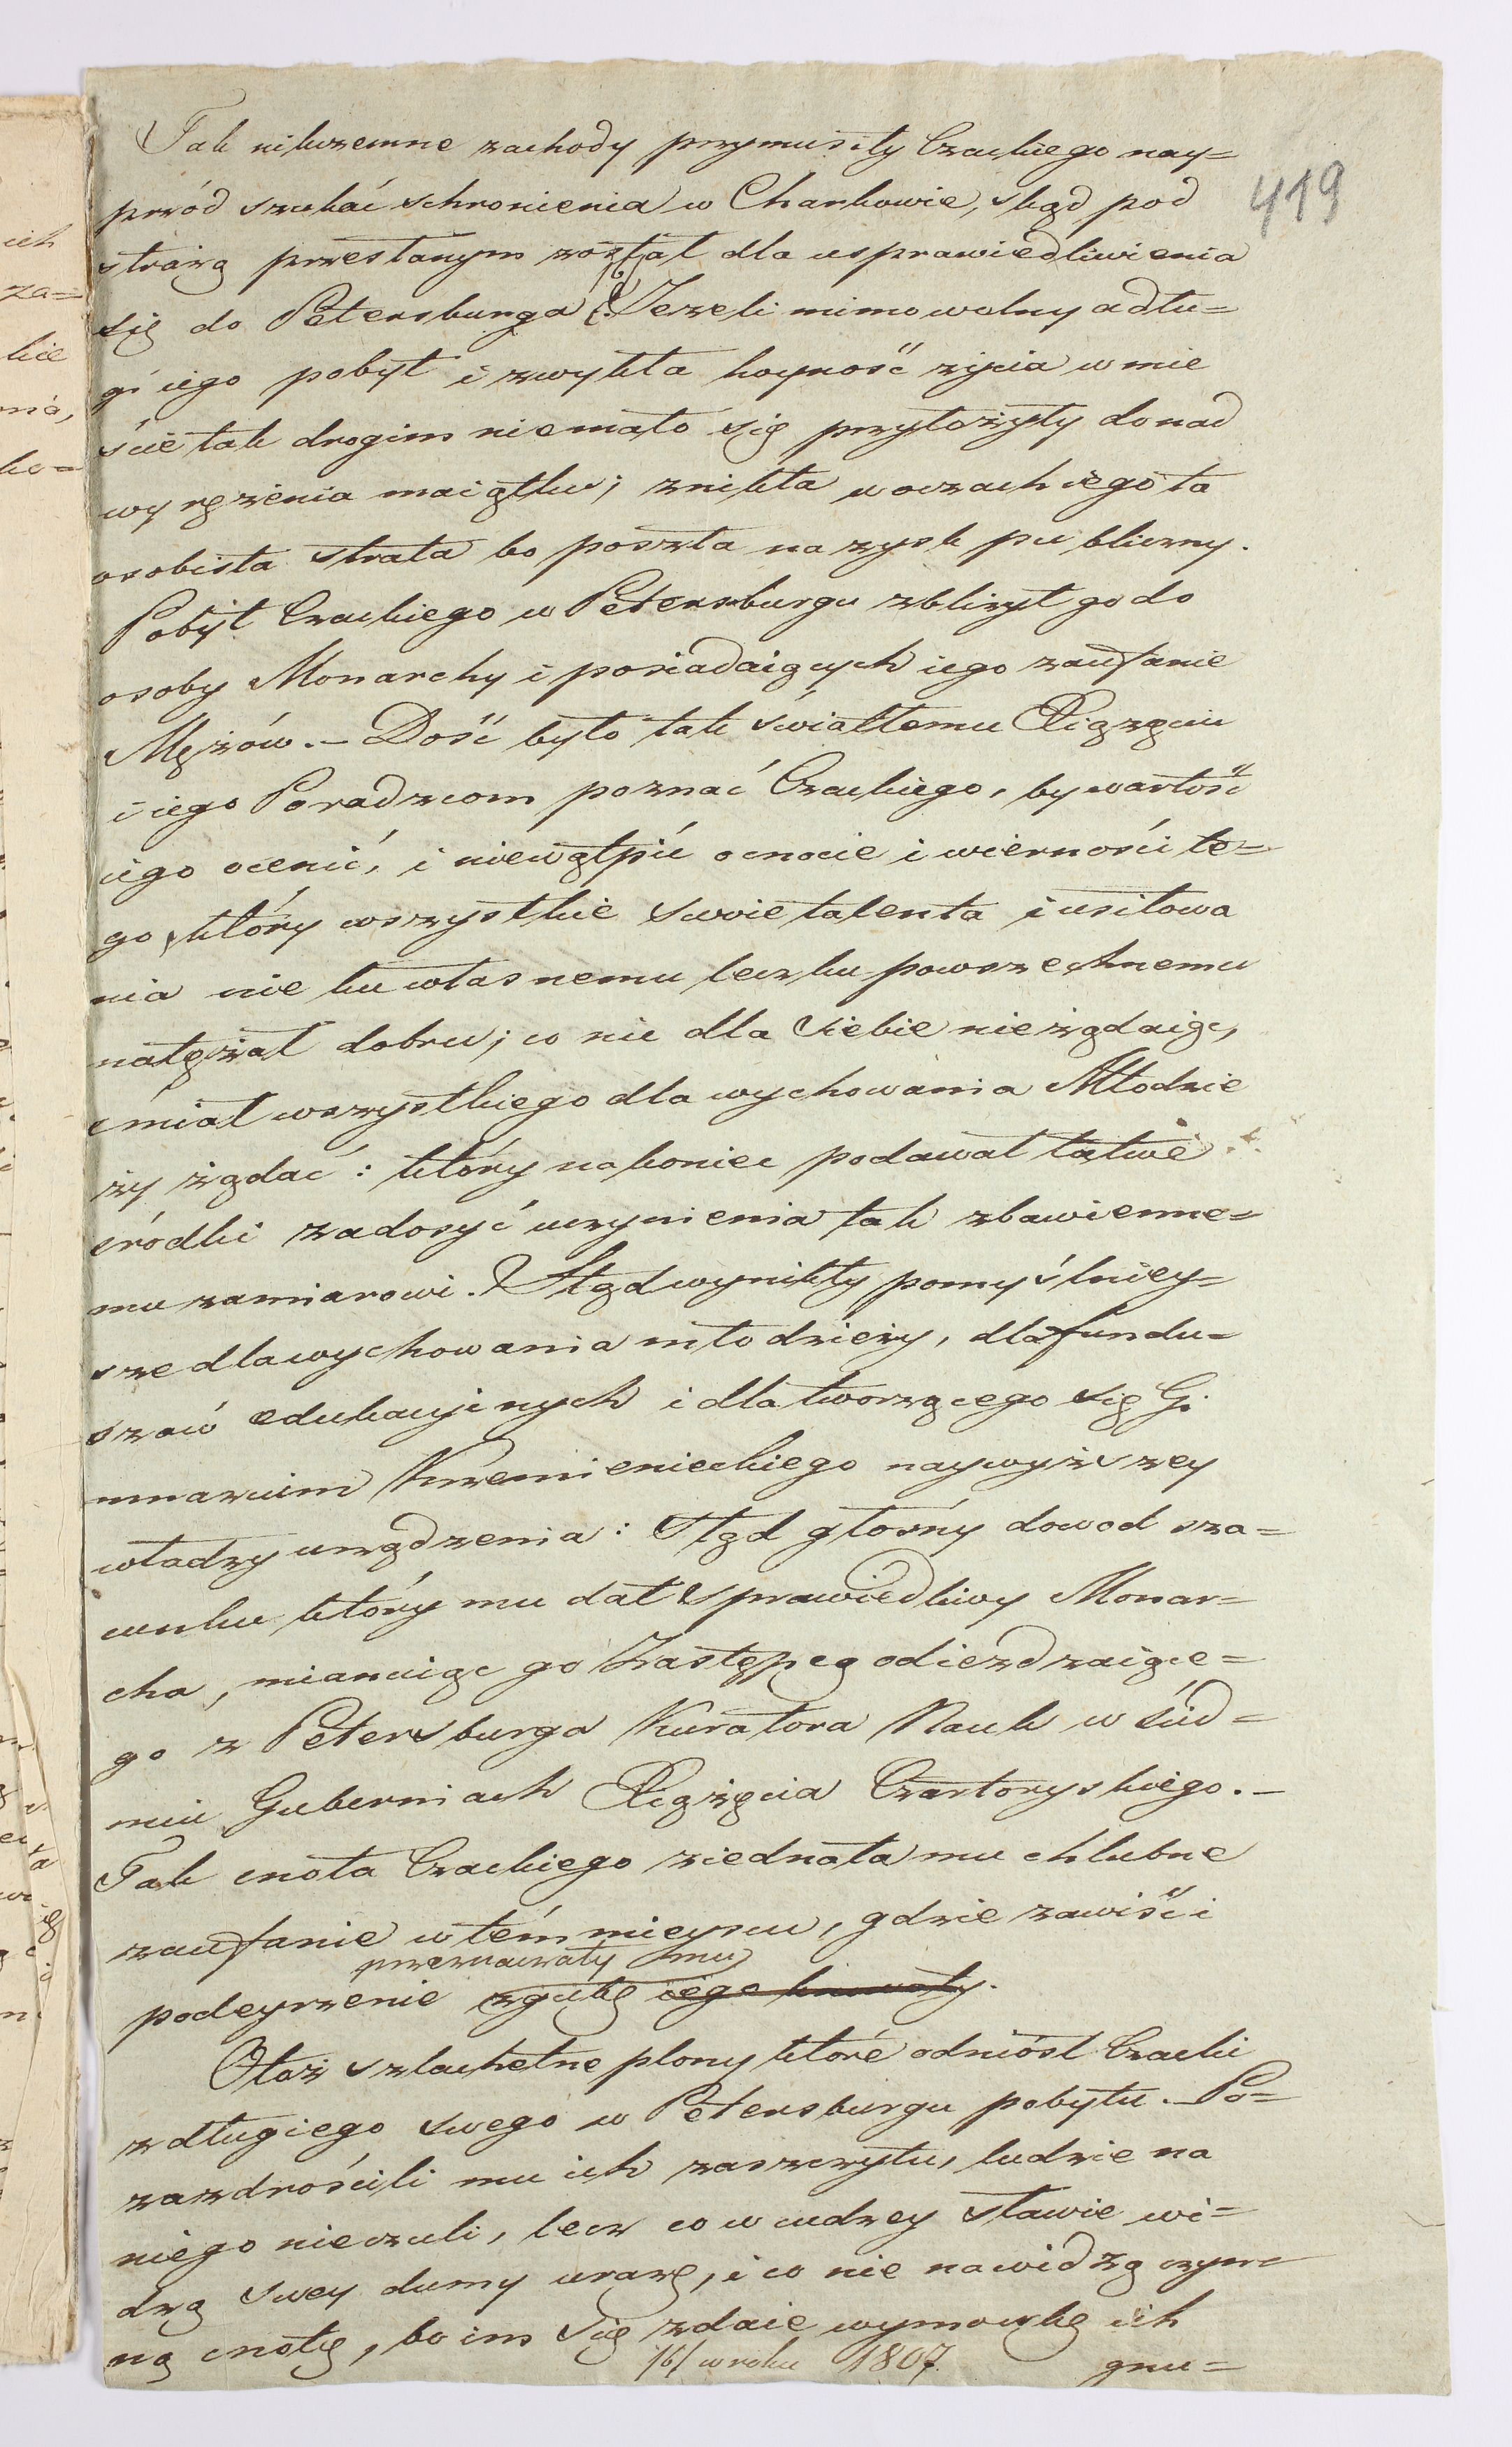 419
Tak nikczemne zachody przymusiły Czackiego nay=
przód szukać schronienia w Charkowie, skąd pod
strażą przesłanym został dla usprawiedliwienia
się do Petersburga (b) Jeżeli mimowolny a dłu=
gi iego pobyt i zwykła hoyność życia w mie
ście tak drogim niemało się przyłożyły do nad
wyrężenia maiątku; znikła w oczach iego ta
osobista strata bo poszła na zysk publiczny.
Pobyt Czackiego w Petersburgu zbliżył go do
osoby Monarchy i posiadaiących iego zaufanie
Mężów. – Dość było tak światłemu Xiążęciu
i iego Poradzcom poznać Czackiego, by wartość
iego ocenić, i niewątpić o cnocie i wierności te=
go, który wszystkie swoie talenta i usiłowa
nia nie ku własnemu lecz ku powszechnemu
natężał dobru; co nic dla siebie nieżądaiąc,
śmiał wszystkiego dla wychowania Młodzie
ży żądać: który nakoniec podawał łatwe
śródki zadosyć uczynienia tak zbawienne=
mu zamiarowi. Stąd wynikły pomyślniey=
sze dla wychowania młodzieży, dla fundu=
szów edukacyinych i dla tworzącego się Gi
mnazium Krzemienieckiego naywyższey
władzy urządzenia: Stąd głośny dowod sza=
cunku który mu dał Sprawiedliwy Monar=
cha, mianuiąc go Zastępcą odieżdzaiące=
go z Petersburga Kuratora Nauk w śied=
miu Guberniach Xiążęcia Czartoryskiego. –
Tak cnota Czackiego ziednała mu chlubne
zaufanie w tém mieyscu, gdzie zawiść i
przeznaczały mu
podeyrzenie zgubę iego knowały.
Otoż szlachetne plony które odniósł Czacki
z długiego swego w Petersburgu pobytu. Po=
zazdrościli mu ich zaszczytu, ludzie na
niego nieczuli, lecz co w cudzey sławie wi=
dzą swey dumy urazę, i co nie nawidzą czyn
ną cnotę, bo im się zdaie wymowką ich
/b/ w roku 1807 gnu=